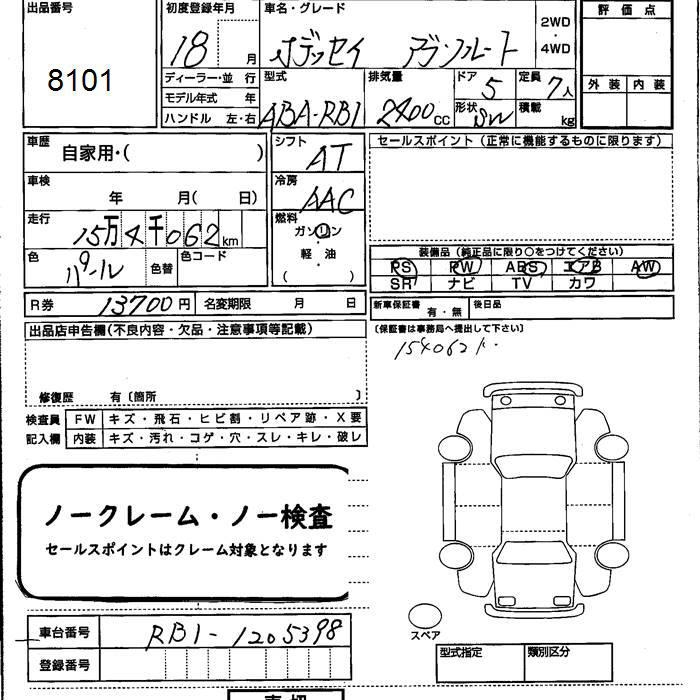 出品番号
8101
初度登録年月
18 月
車名・グレード
オデッセイ アブソルート
2WD
・
4WD
評価点
外装 内装
ディーラー・並 行
モデル年式 年
ハンドル 左・右
型式
ABA-RB1
排気量
2400cc
ドア
5
形状
SW
定員
7人
積載
kg
車歴
自家用・( )
車検
年 月( 日)
走行
15万4千062km
色
パール
色替
色コード
シフト
AT
冷房
AAC
燃料
ガソリン
・
軽・油
( )
セールスポイント(正常に機能するものに限ります)
装備品(純正品に限り○をつけてください)
PS PW ABS エアB AW
SR ナビ TV カワ
R券 13700円 名変期限 月 日
新車保証書
有・無
後日品
(保証書は事務局へ提出して下さい)
154062K.
出品店申告欄(不良内容・欠品・注意事項等記載)
修復歴 有〔箇所 〕
検査員
記入欄
FW キズ・飛石・ヒビ割・リペア跡・X要
内装 キズ・汚れ・コゲ・穴・スレ・キレ・破レ
ノークレーム・ノー検査
セールスポイントはクレーム対象となります
車台番号 RB1-1205398
登録番号
スペア
型式指定 類別区分